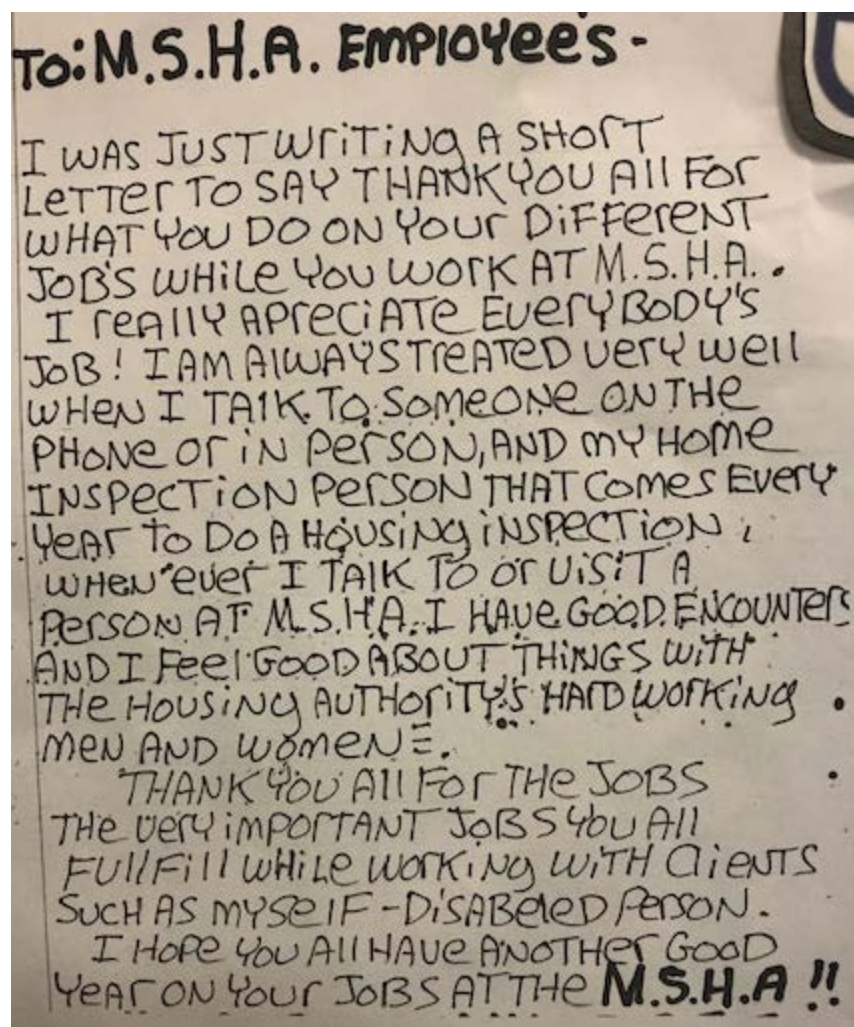 To: M.S.H.A. EMPlOYee's -
I WAS JUST WriTiNg A SHOrT
LeTTer TO SAY THANK YOU All FOr
WHAT YOU DO ON YOUr DiFFereNT
JOB'S WHiLe YOU WOrK AT M.S.H.A..
I reAllY APreCiATe EVerYBODY'S
JOB! I AM AlWAYS TreATeD Very well
WHeN I TAlK TO SOMeONe ON THe
PHONe Or iN PerSON, AND mY HOMe
INSPeCTiON PerSON THAT ComeS EVerY
YeAr To DO A HOUSiNg iNSPeCTiON,
WHeN'eVer I TAlK TO Or ViSiT A
PerSON AT M.S.H.A. I HAVe GOOD ENCOUNTerS
AND I Feel GOOD ABOUT THiNGS WiTH
THe HOUSiNg AUTHOriTY'S HArD WOrKiNg
MeN AND WOMeN.
THANK YOU All FOr THe JOBS
THe VerY iMPOrTANT JOBS YOU All
FUllFill WHiLe WOrKiNg WiTH ClieNTS
SUCH AS MYSelF - DiSABeleD PerSON.
I HOPe YOU All HAVe ANOTHer GOOD
YeAr ON YOUr JOBS AT THe M.S.H.A!!